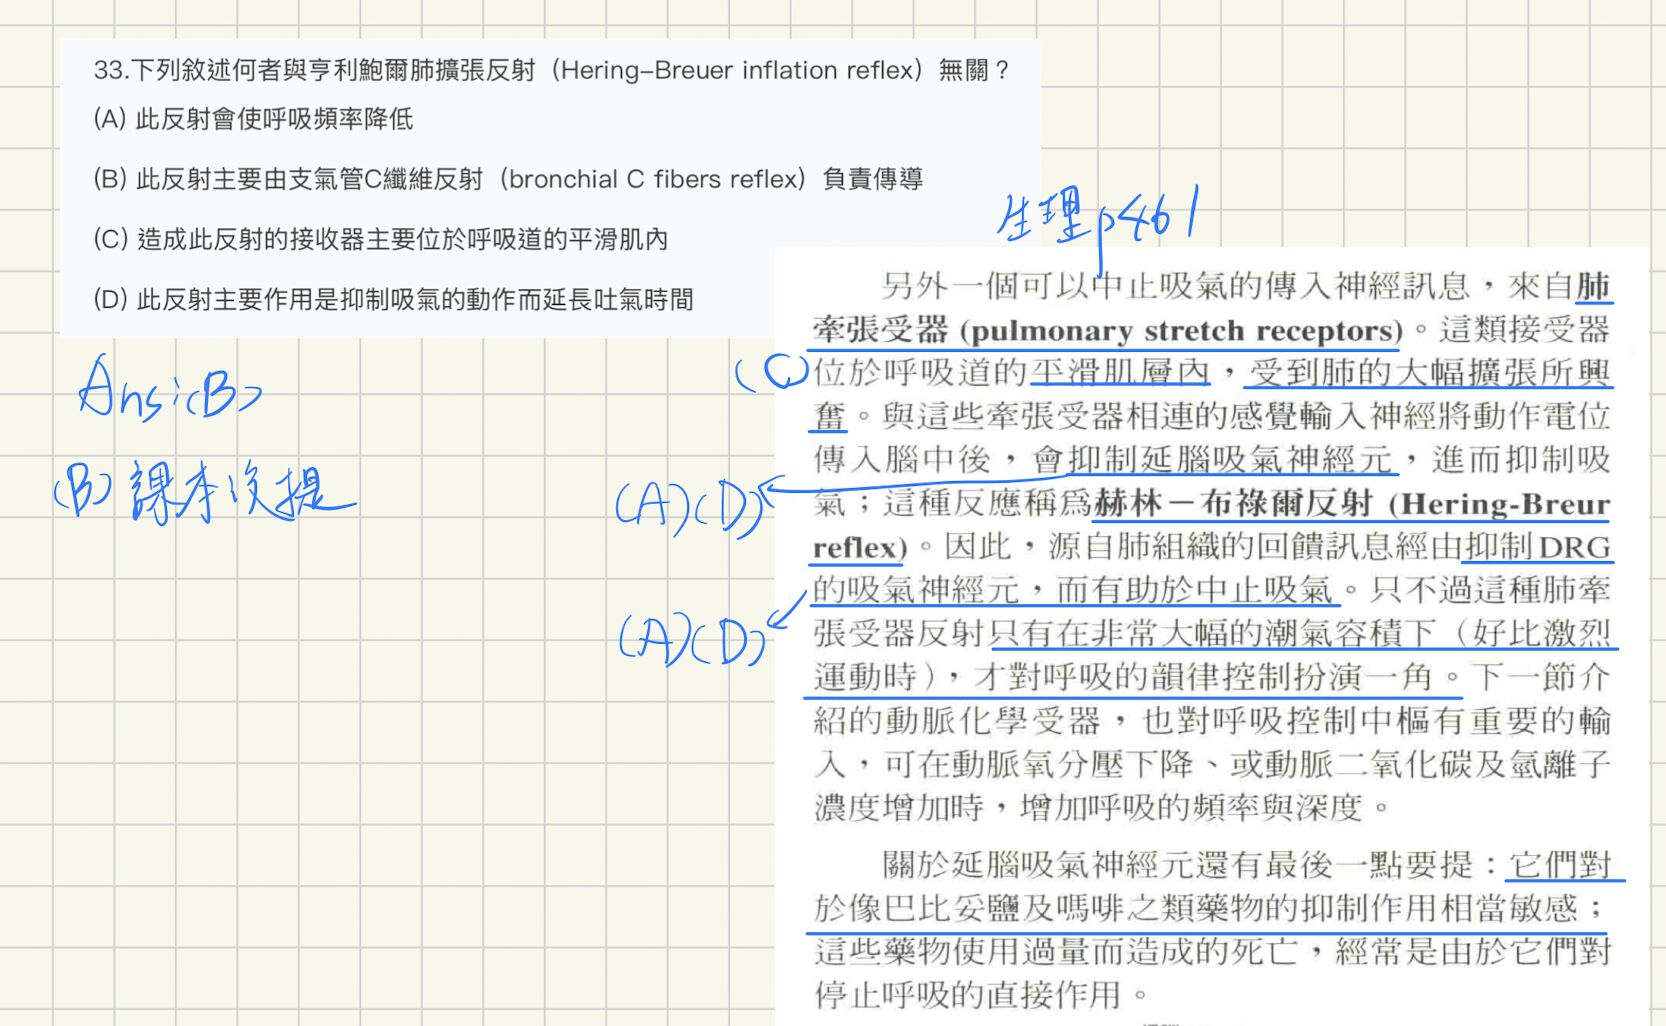 33.下列敘述何者與亨利鮑爾肺擴張反射（Hering–Breuer inflation reflex）無關？
(A) 此反射會使呼吸頻率降低
(B) 此反射主要由支氣管C纖維反射（bronchial C fibers reflex）負責傳導
(C) 造成此反射的接收器主要位於呼吸道的平滑肌內
(D) 此反射主要作用是抑制吸氣的動作而延長吐氣時間
Ans:(B)
(B) 課本沒提
生理p461
另外一個可以中止吸氣的傳入神經訊息，來自肺
牽張受器 (pulmonary stretch receptors)。這類接受器
(C)位於呼吸道的平滑肌層內，受到肺的大幅擴張所興
奮。與這些牽張受器相連的感覺輸入神經將動作電位
傳入腦中後，會抑制延腦吸氣神經元，進而抑制吸
(A)(D)
氣；這種反應稱爲赫林－布祿爾反射 (Hering-Breur
reflex)。因此，源自肺組織的回饋訊息經由抑制 DRG
的吸氣神經元，而有助於中止吸氣。只不過這種肺牽
(A)(D)
張受器反射只有在非常大幅的潮氣容積下（好比激烈
運動時），才對呼吸的韻律控制扮演一角。下一節介
紹的動脈化學受器，也對呼吸控制中樞有重要的輸
入，可在動脈氧分壓下降、或動脈二氧化碳及氫離子
濃度增加時，增加呼吸的頻率與深度。
關於延腦吸氣神經元還有最後一點要提：它們對
於像巴比妥鹽及嗎啡之類藥物的抑制作用相當敏感；
這些藥物使用過量而造成的死亡，經常是由於它們對
停止呼吸的直接作用。